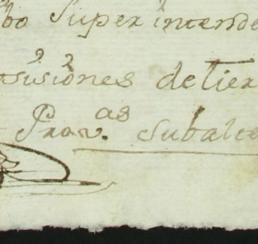 bo Super intende
sisiones de tier
Prov.as Subalte